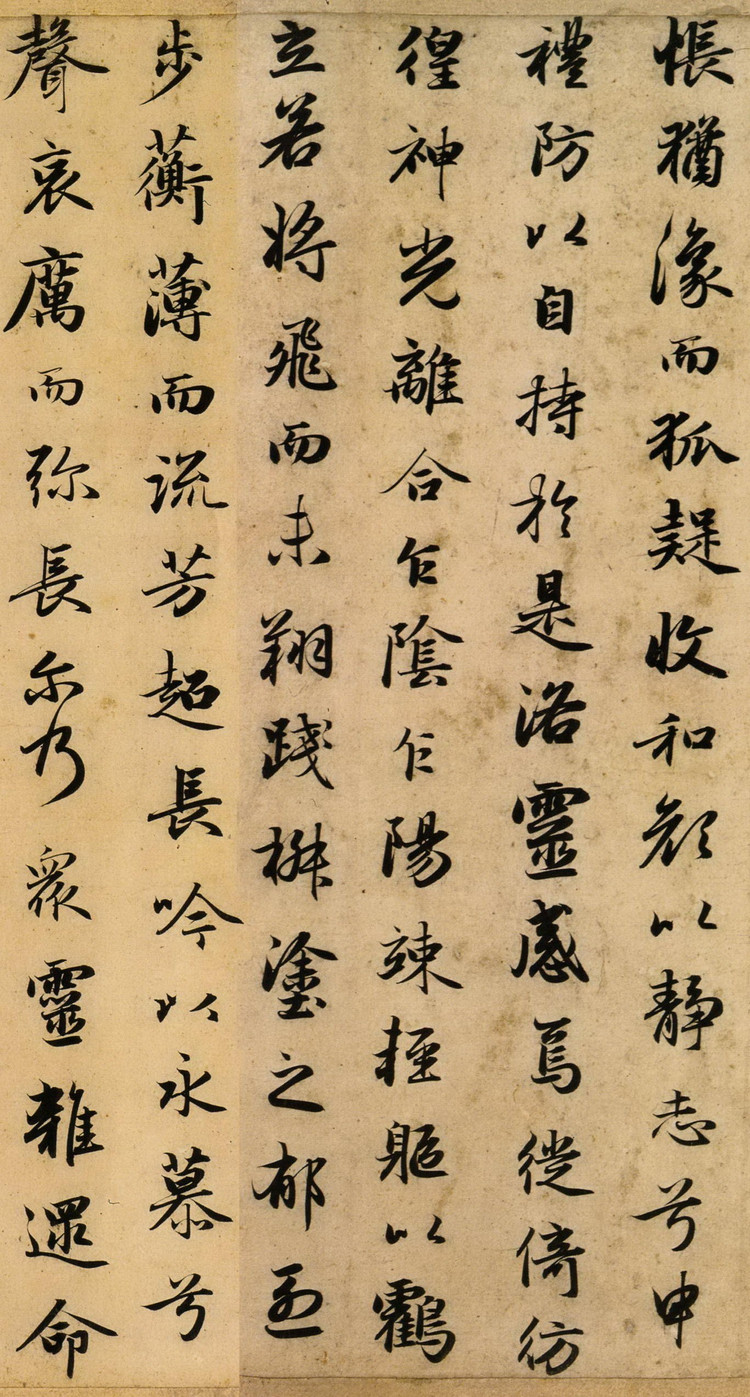 悵猶豫而狐疑收和顔以静志兮申
禮防以自持於是洛靈感焉徙倚彷
徨神光離合乍陰乍陽竦輕軀以鶴
立若將飛而未翔踐椒塗之郁烈
步蘅薄而流芳超長吟以永慕兮
聲哀厲而弥長尔乃眾靈雜遝命